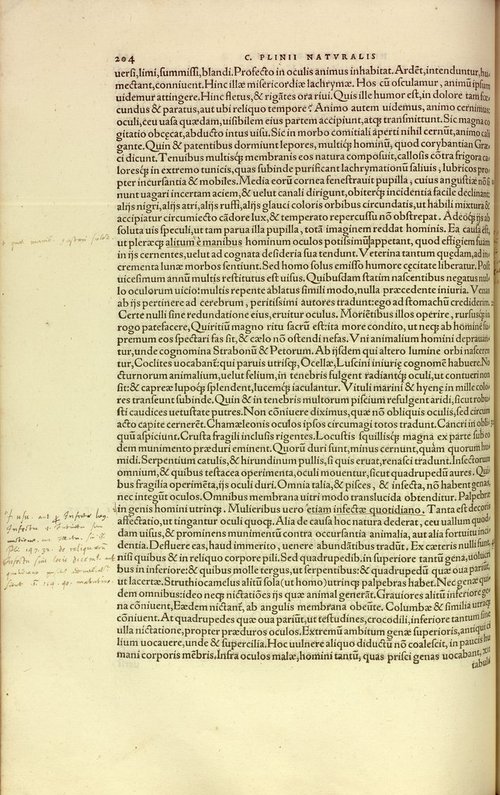 204 C. PLINII NATVRALIS
uersi, limi, summissi, blandi. Profecto in oculis animus inhabitat. Ardēt, intenduntur, hu
mectant, conniuent. Hinc illæ misericordiæ lachrymæ. Hos cū osculamur, animū ipsum
uidemur attingere. Hinc fletus, & rigātes ora riui. Quis ille humor est, in dolore tam fœ
cundus & paratus, aut ubi reliquo tempore? Animo autem uidemus, animo cernimus:
oculi, ceu uasa quædam, uisibilem eius partem accipiunt, atq; transmittunt. Sic magna co
gitatio obcęcat, abducto intus uisu. Sic in morbo comitiali aperti nihil cernūt, animo cali
gante. Quin & patentibus dormiunt lepores, multiq; hominū, quod corybantian Græ
ci dicunt. Tenuibus multisq; membranis eos natura composuit, callosis cōtra frigora ca
loresq; in extremo tunicis, quas subinde purificant lachrymationū saliuis, lubricos pro
pter incursantia & mobiles. Media eorū cornea fenestrauit pupilla, cuius angustiæ nō si
nunt uagari incertam aciem, & uelut canali dirigunt, obiterq; incidentia facile declinant:
alijs nigri, alijs atri, alijs ruffi, alijs glauci coloris orbibus circundatis, ut habili mixtura &
accipiatur circumiecto cādore lux, & temperato repercussu nō obstrepat. Adeoq; ijs ab
soluta uis speculi, ut tam parua illa pupilla, totā imaginem reddat hominis. Ea causa est,
ut pleræq; alitum è manibus hominum oculos potissimū appetant, quod effigiem suam
in ijs cernentes, uelut ad cognata desideria sua tendunt. Veterina tantum quędam, ad in
crementa lunæ morbos sentiunt. Sed homo solus emisso humore cęcitate liberatur. Post
uicesimum annū multis restitutus est uisus. Quibusdam statim nascentibus negatus nul
lo oculorum uitio: multis repente ablatus simili modo, nulla præcedente iniuria. Venas
ab ijs pertinere ad cerebrum, peritissimi autores tradunt: ego ad stomachū crediderim.
Certe nulli sine redundatione eius, eruitur oculus. Moriētibus illos operire, rursusq; in
rogo patefacere, Quiritiū magno ritu sacrū est: ita more condito, ut neq; ab homine su
premum eos spectari fas sit, & cælo nō ostendi nefas. Vni animalium homini deprauan
tur, unde cognomina Strabonū & Petorum. Ab ijsdem qui altero lumine orbi nasceren
tur, Coclites uocabant: qui paruis utrisq;, Ocellæ, Luscini iniurię cognomē habuere. No
cturnorum animalium, uelut felium, in tenebris fulgent radiantq; oculi, ut contueri non
sit: & capreæ lupoq; splendent, lucemq; iaculantur. Vituli marini & hyenę in mille colo
res transeunt subinde. Quin & in tenebris multorum piscium refulgent aridi, sicut robu
sti caudices uetustate putres. Non cōniuere diximus, quæ nō obliquis oculis, sed circum
acto capite cernerēt. Chamæleonis oculos ipsos circumagi totos tradunt. Cancri in obli
quū aspiciunt. Crusta fragili inclusis rigentes. Locustis squillisq; magna ex parte sub eo
dem munimento præduri eminent. Quorū duri sunt, minus cernunt, quàm quorum hu
midi. Serpentium catulis, & hirundinum pullis, si quis eruat, renasci tradunt. Insectorum
omnium, & quibus testacea operimenta, oculi mouentur, sicut quadrupedū aures. Qui
bus fragilia operimēta, ijs oculi duri. Omnia talia, & pisces, & insecta, nō habent genas,
nec integūt oculos. Omnibus membrana uitri modo translucida obtenditur. Palpebræ
in genis homini utrinq;. Mulieribus uero etiam infectæ quotidiano. Tanta est decoris
affectatio, ut tingantur oculi quoq;. Alia de causa hoc natura dederat, ceu uallum quod
dam uisus, & prominens munimentū contra occursantia animalia, aut alia fortuitu inci
dentia. Defluere eas, haud immerito, uenere abundātibus tradūt. Ex cæteris nulli sunt,
nisi quibus & in reliquo corpore pili. Sed quadrupedib. in superiore tantū gena, uolucri
bus in inferiore: & quibus molle tergus, ut serpentibus: & quadrupedū quæ oua pariūt,
ut lacertæ. Struthiocamelus alitū sola (ut homo) utrinq; palpebras habet. Nec genæ qui
dem omnibus: ideo neq; nictatiōes ijs quæ animal generāt. Grauiores alitū inferiore ge
na cōniuent, Eædem nictant, ab angulis membrana obeūte. Columbæ & similia utraq;
cōniuent. At quadrupedes quæ oua pariūt, ut testudines, crocodili, inferiore tantum sine
ulla nictatione, propter præduros oculos. Extremū ambitum genæ superioris, antiqui ci
lium uocauere, unde & supercilia. Hoc uulnere aliquo diductū nō coalescit, in paucis hu
mani corporis mēbris. Infra oculos malæ, homini tantū, quas prisci genas uocabant, xii
tabula